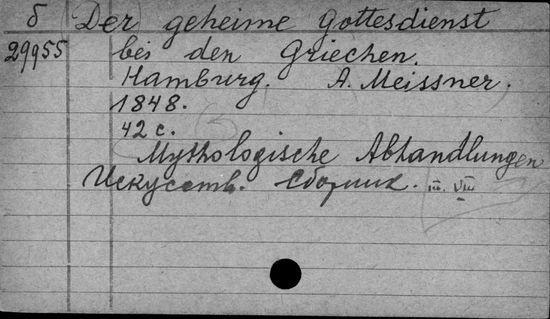 δ Der geheime Gottesdienst
29955 bei den Griechen.
Hamburg. A. Meissner.
1848.
42 с.
Mythologische Abhandlungen
Искусств. Сборник. III. VIII